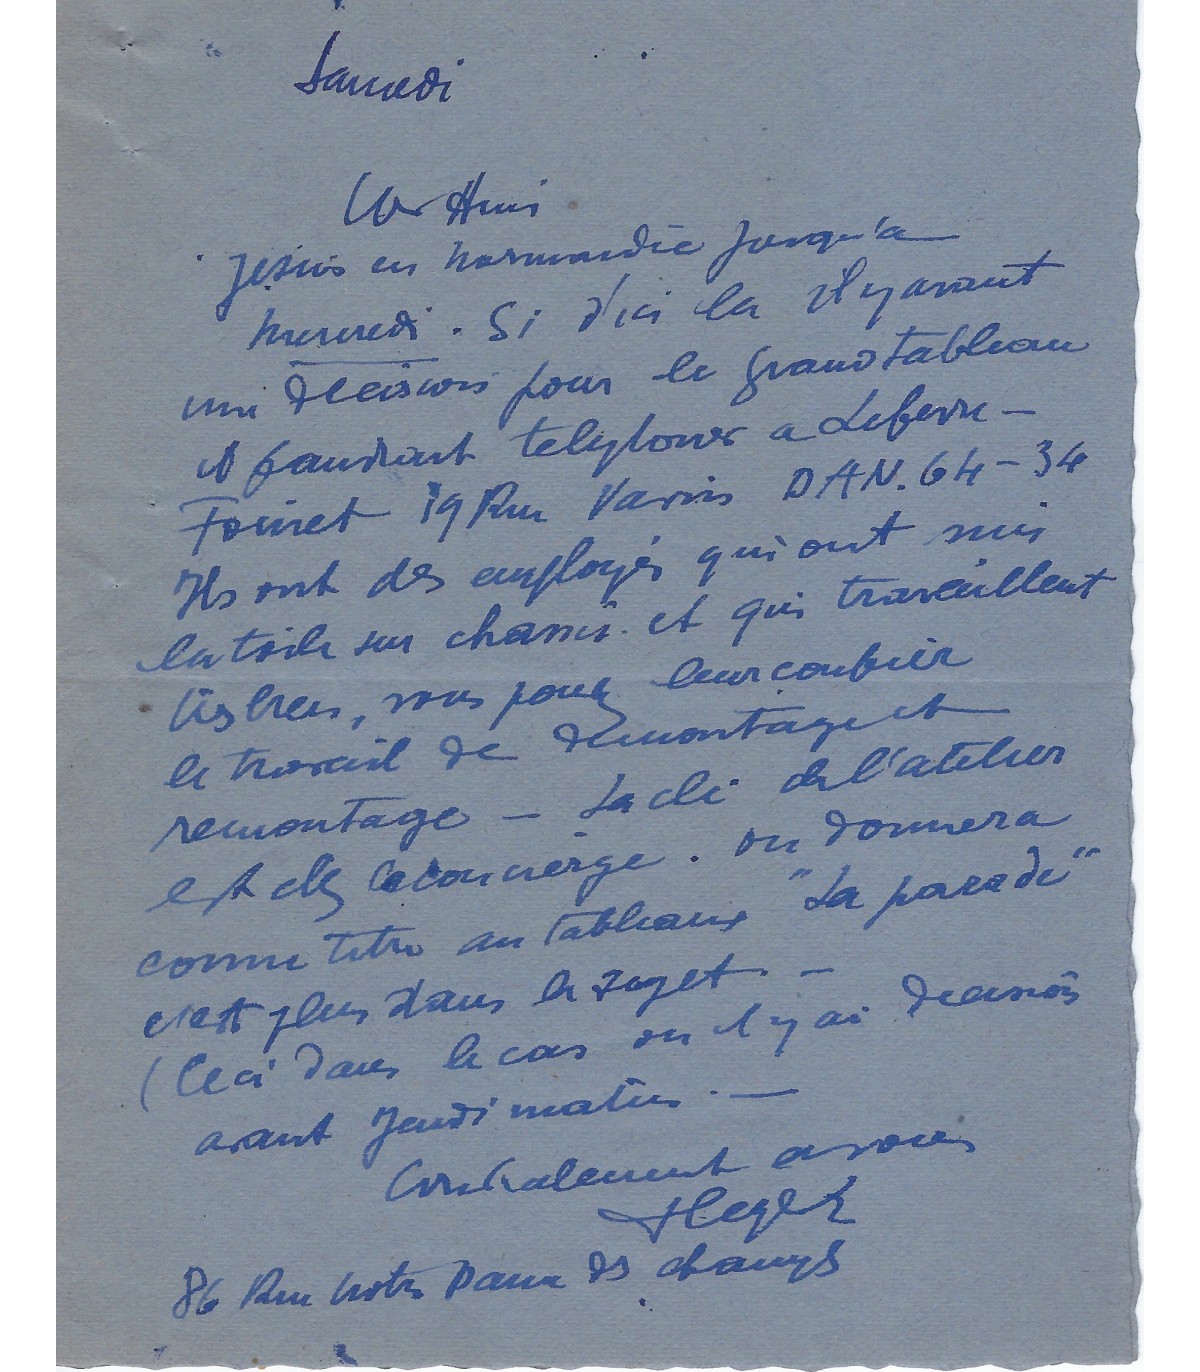 Samedi
Cher Ami
Je suis en Normandie jusqu'a
mercredi. Si d'ici la il y avait
une decision pour le grand tableau
il faudrait telephoner a Lefevre-
Foinet 19 Rue Vavin DAN. 64-34
Ils ont des employés qui ont mis
la toile sur chassis. et qui travaillent
tres bien, vous pouvez leur confier
le travail de demontage et
remontage — La clé de l'atelier
est chez la concierge. on donnera
comme titre au tableaux "La parade"
c'est plus dans le sujet. —
(Ceci dans le cas ou il y ai decision
avant Jeudi matin. —
Cordialement a vous
FLeger
86 Rue Notre Dame des champs